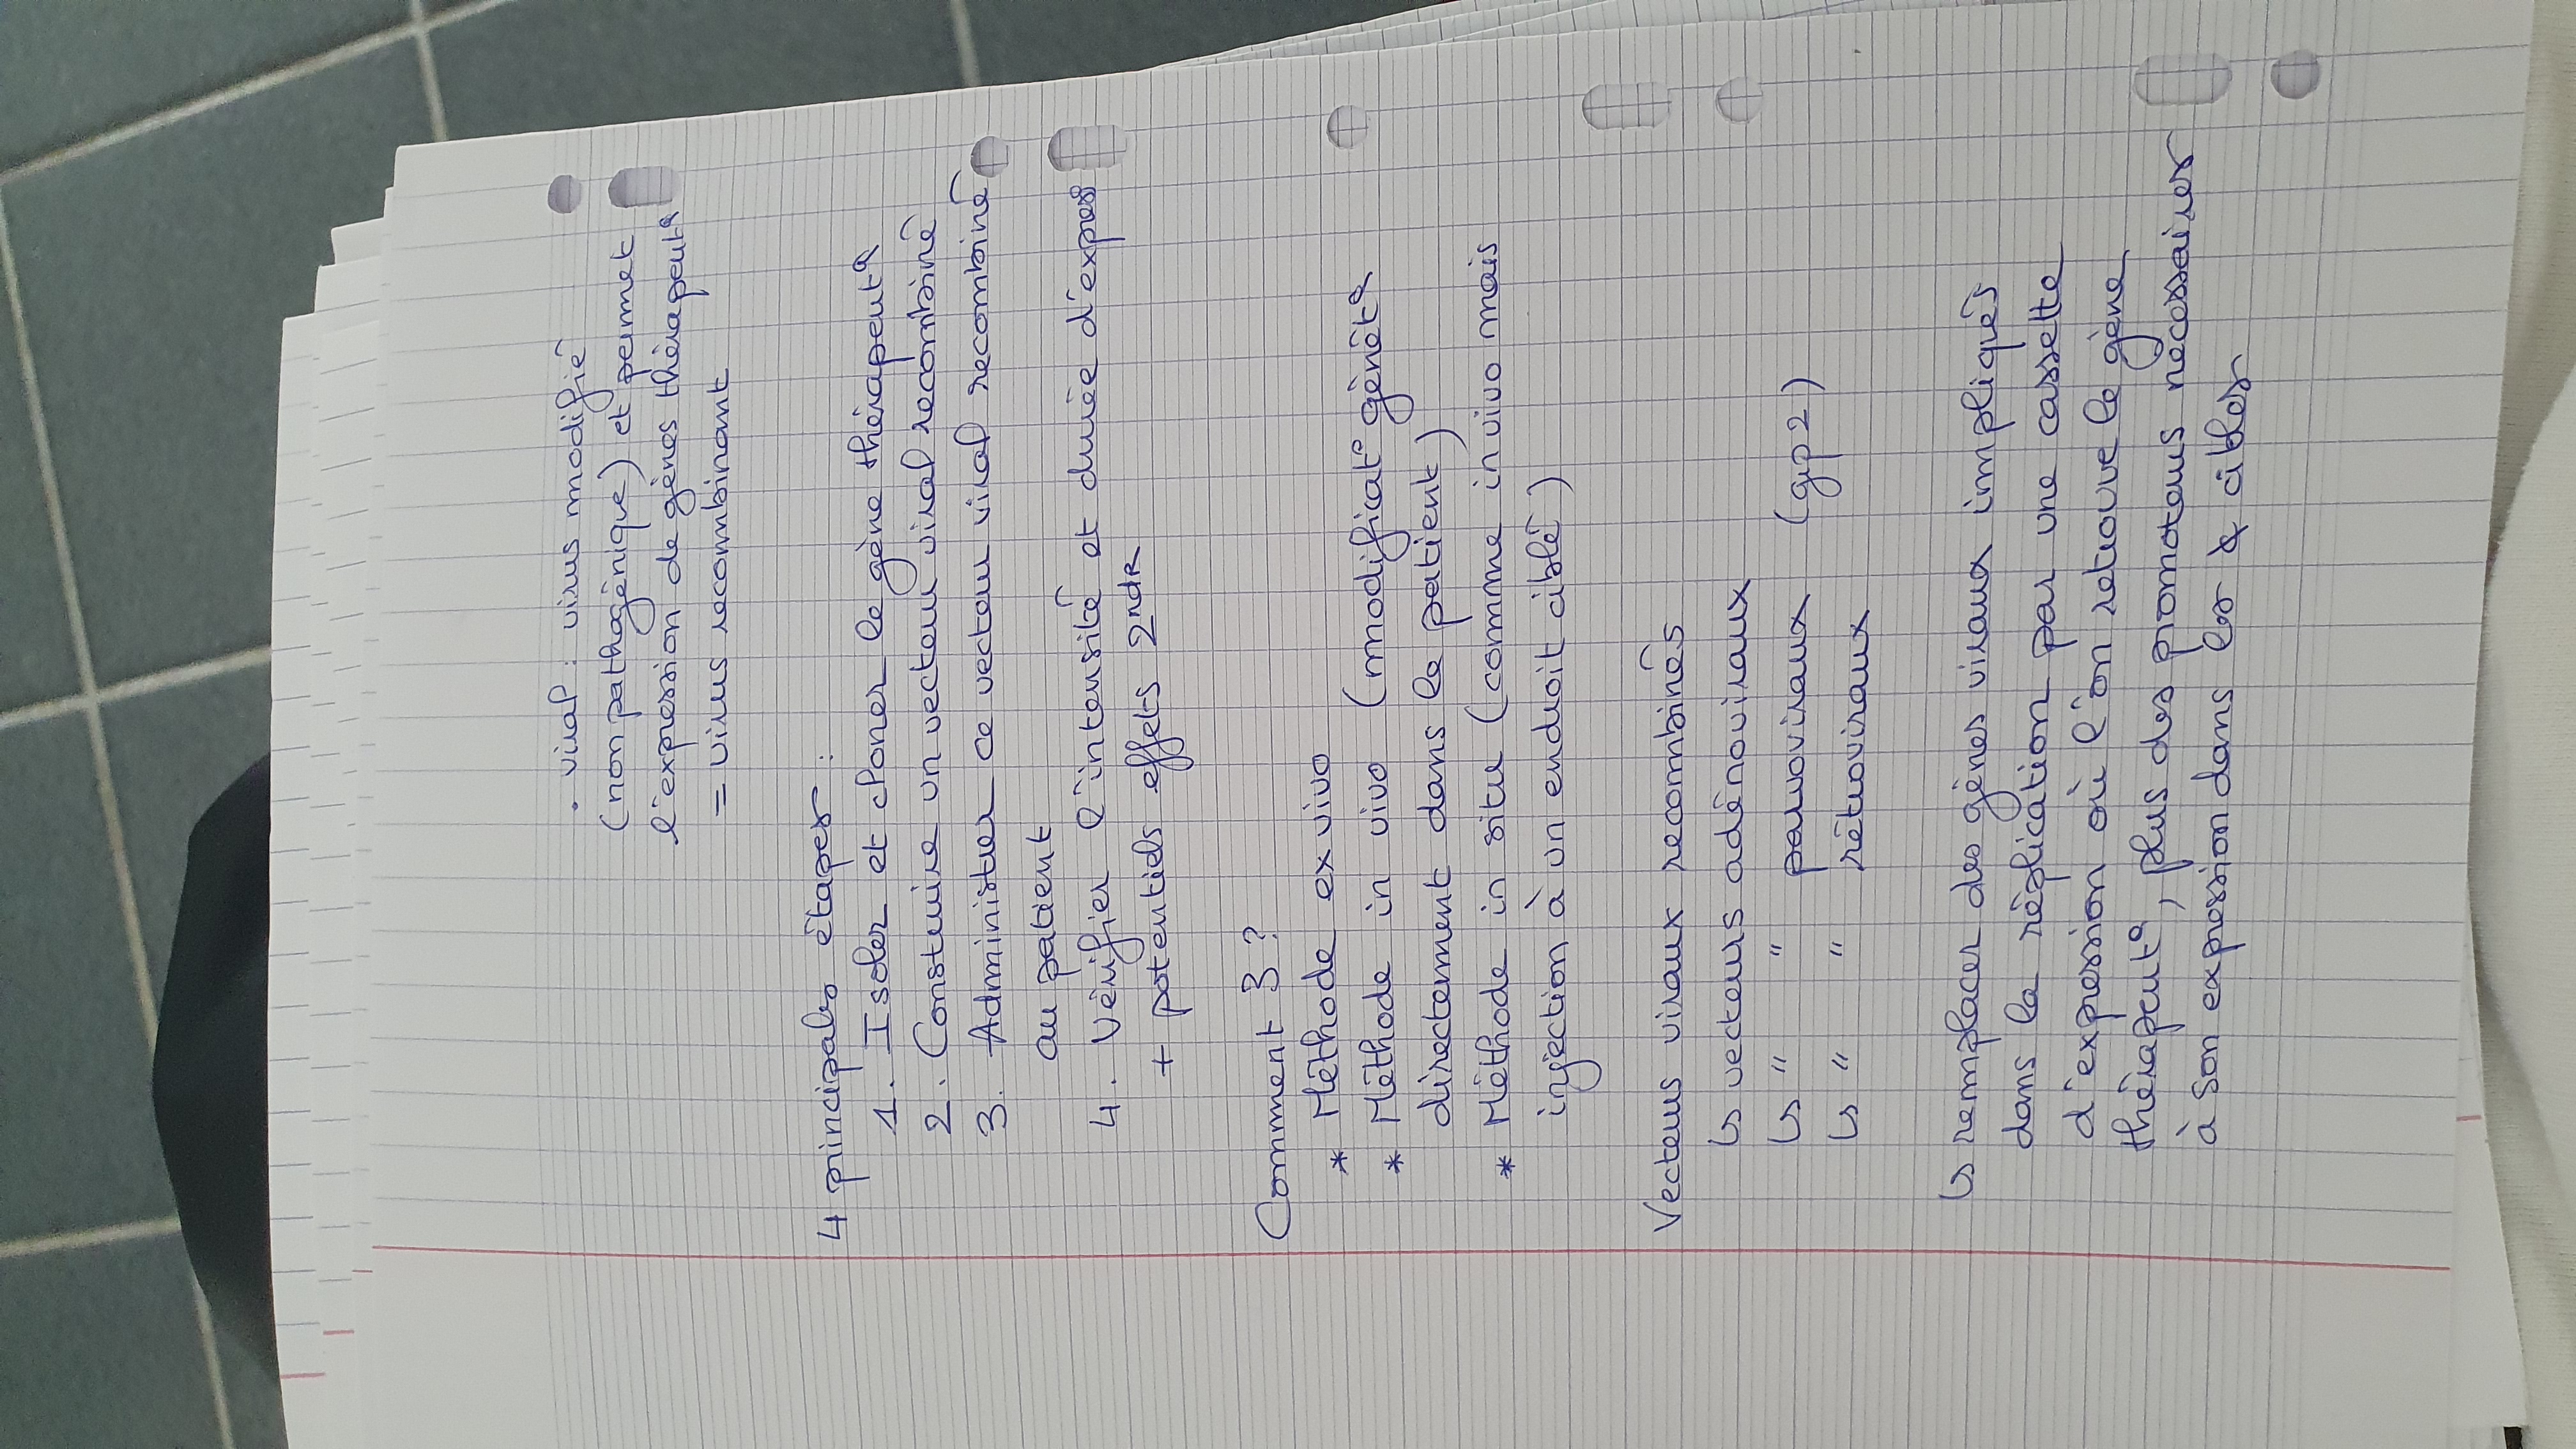 . viral : virus modifié
(non pathogénique) et permet
l'expression de gènes thérapeutq
= virus recombinant
4 principales étapes :
1. Isoler et cloner le gène thérapeutq
2. Construire un vecteur viral recombiné
3. Administrer ce vecteur viral recombiné
au patient
4. Vérifier l'intensité et durée d'expres°
+ potentiels effets 2ndR
Comment 3 ?
* Méthode ex vivo
* Méthode in vivo (modificat° génétq
directement dans le patient)
* Méthode in situ (comme in vivo mais
injection à un endroit ciblé)
Vecteurs viraux recombinés
↳ vecteurs adénoviraux
↳ " " parvoviraux (grp 2)
↳ " " rétroviraux
↳ remplacer des gènes viraux impliqués
dans la réplication par une cassette
d'expression où l'on retrouve le gène
thérapeutq, plus des promoteurs nécessaires
à son expression dans les cibles